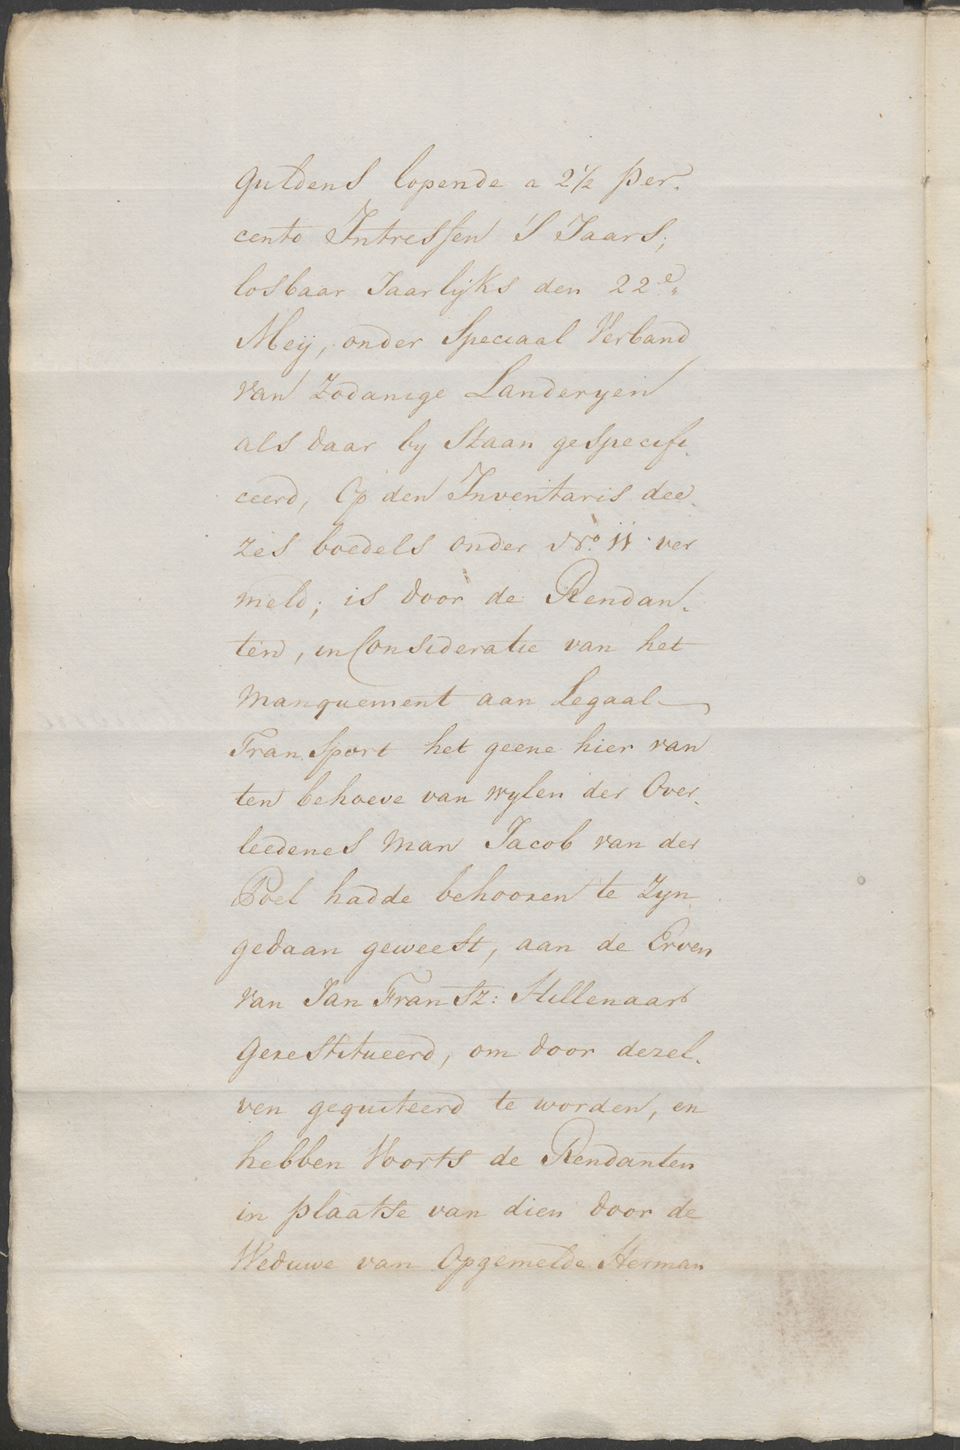 guldens lopende a 2½ Per,
cento Intressen 's Jaars;
losbaar Jaarlyks den 22e.
Meij, onder Speciaal Verband
van Zodanige Landeryen
als daar by Staan gespecifi,
ceerd, Op den Inventaris dee,
zes boedels onder No. 11 ver
meld; is door de Rendan,
ten, in Consideratie van het
Manquement aan Legaal
Transport het geene hier van
ten behoeve van wylen der Over,
leedenes Man Jacob van der
Poel hadde behooren te Zyn
gedaan geweest, aan de Erven
van Jan Fransz: Hillenaar
gerestitueerd, om door dezel,
ven gequiteerd te worden, en
hebben Voorts de Rendanten
in plaatse van dien door de
Weduwe van Opgemelde Herman